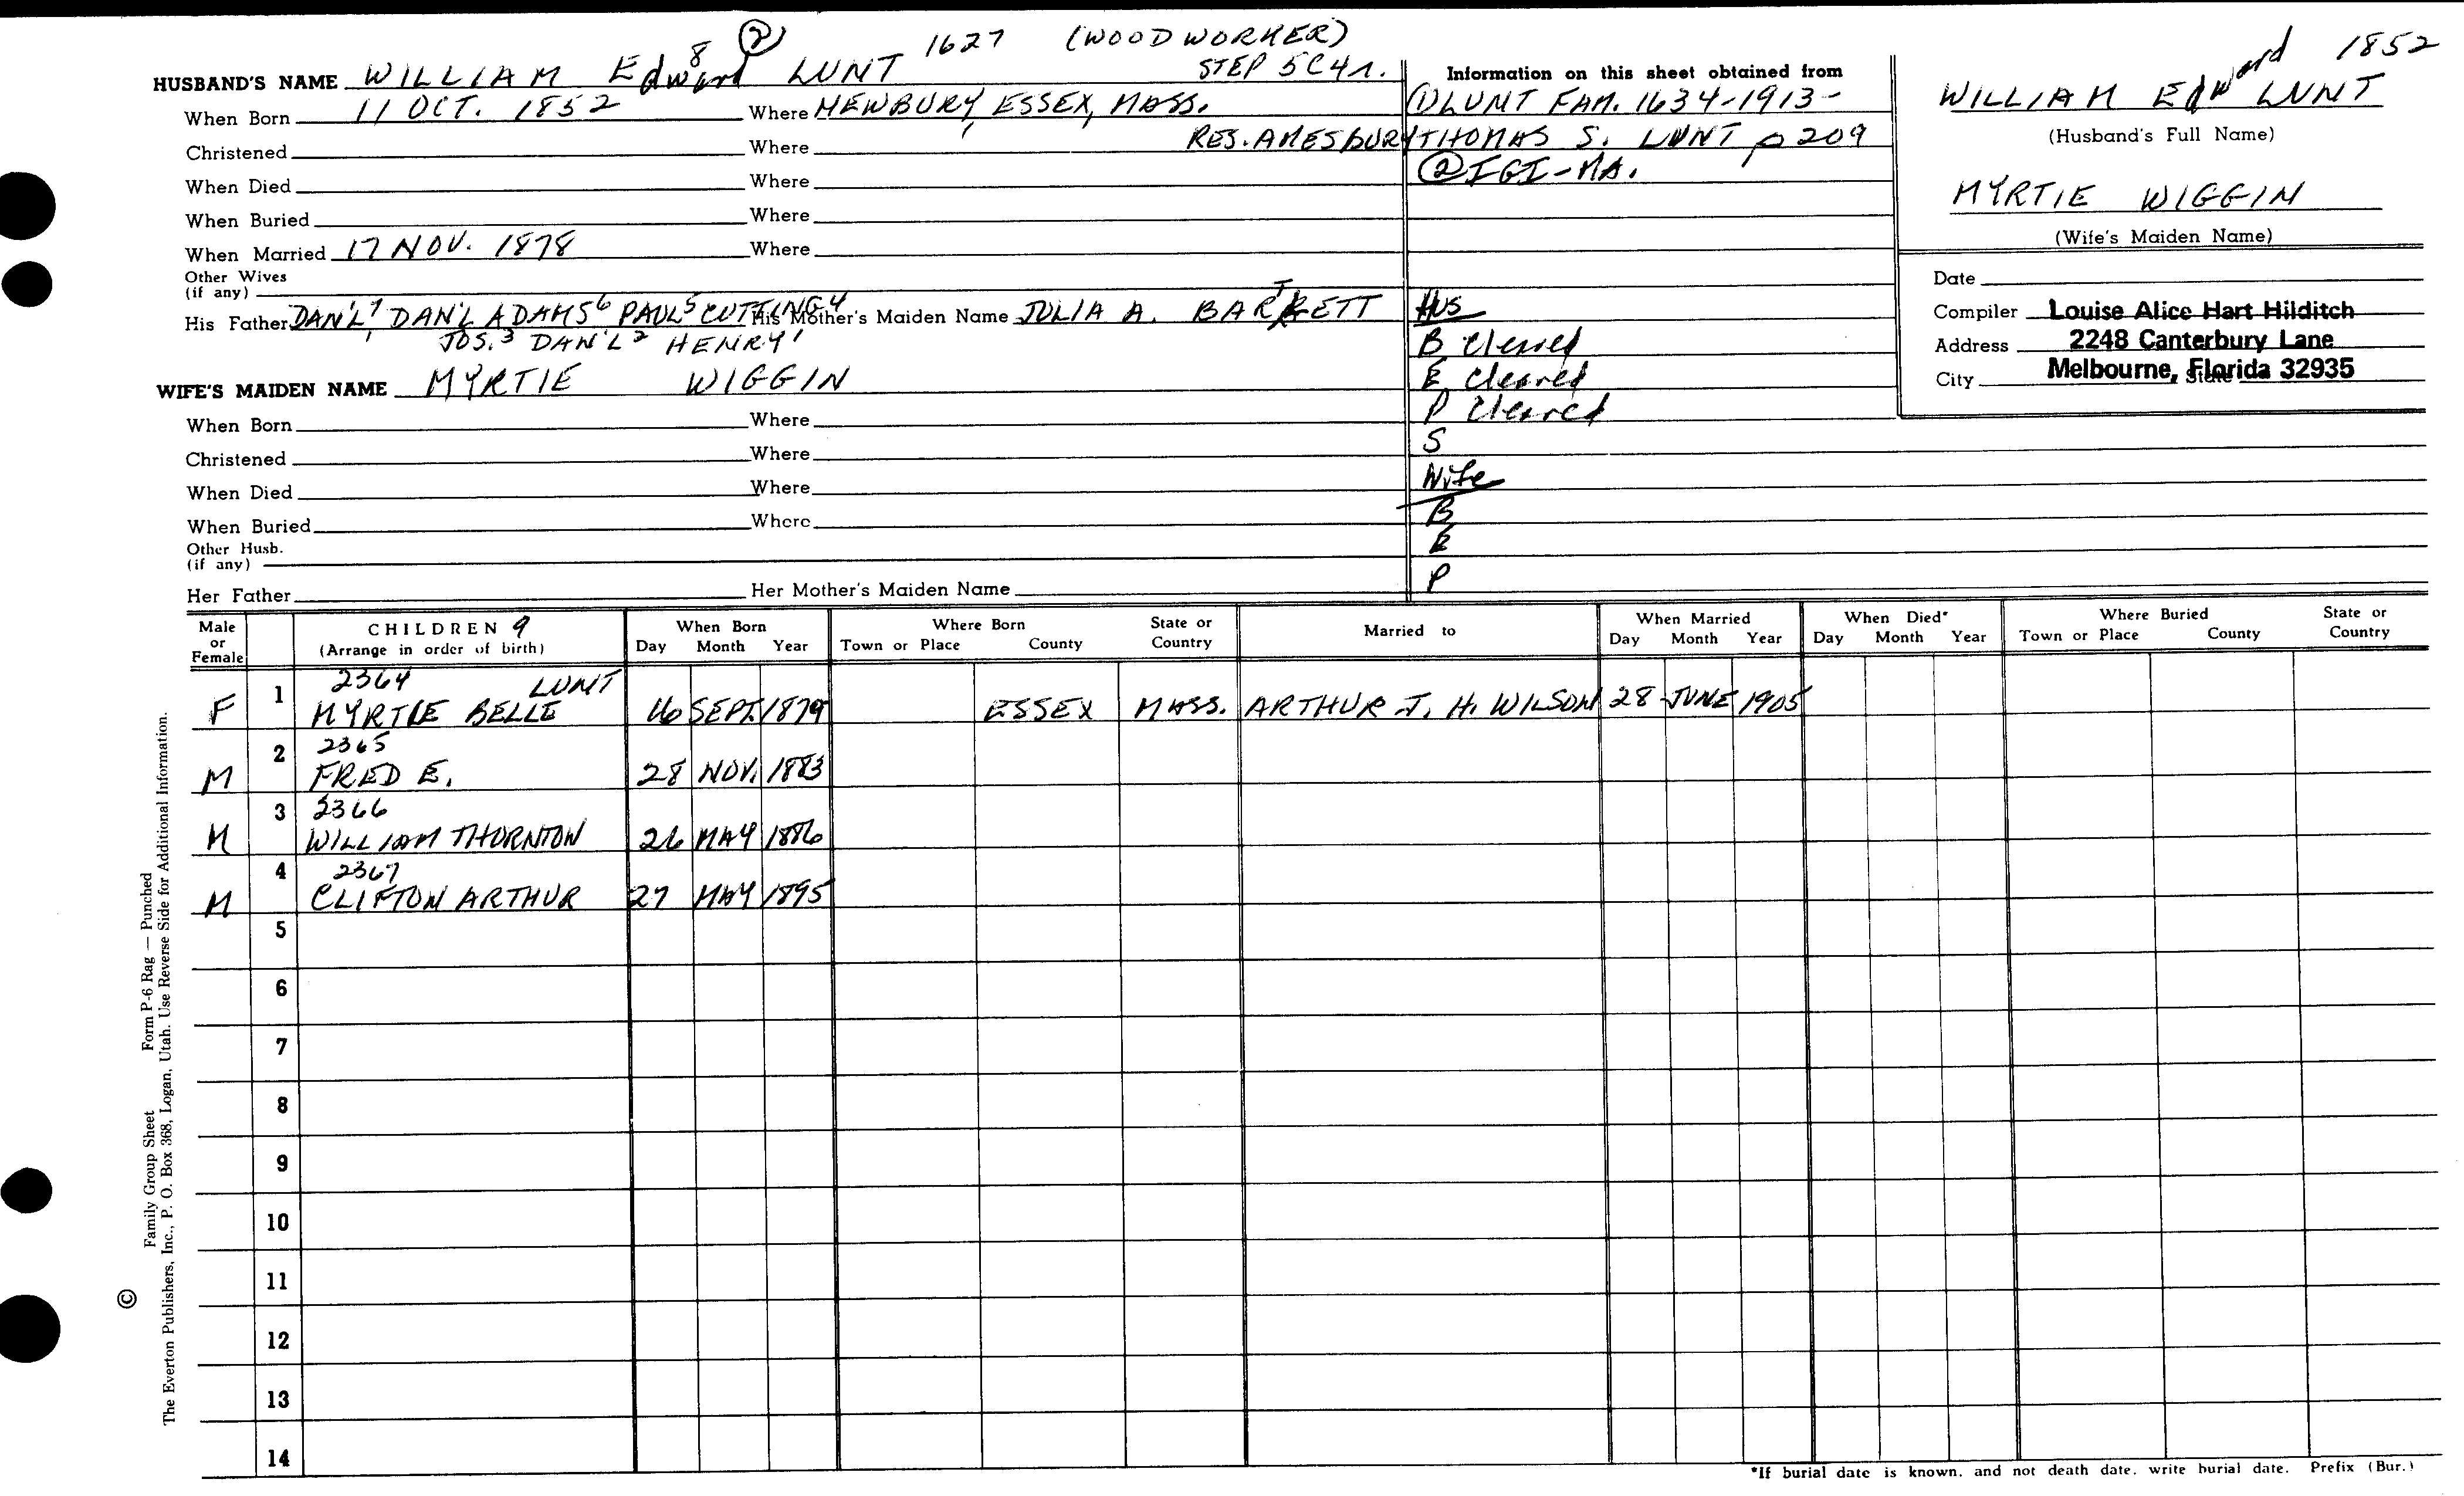 HUSBAND'S NAME WILLIAM Edward 8 ② LUNT 1627 (WOODWORKER)
STEP 5C41.
When Born 11 OCT. 1852 Where NEWBURY, ESSEX, MASS.
RES. AMESBURY
Christened Where
When Died Where
When Buried Where
When Married 17 NOV. 1878 Where
Other Wives
(if any)
His Father DAN'L7, DAN'L ADAMS6 PAUL5 CUTTING4 His Mother's Maiden Name JULIA A. BARTLETT
JOS.3 DAN'L2 HENRY1
Information on this sheet obtained from
① LUNT FAM. 1634-1913-
THOMAS S. LUNT p 209
② IGI-MA.
HUS
B Cleared
E Cleared
P Cleared
S
Wife
B
E
P
1852
WILLIAM Edward LUNT
(Husband's Full Name)
MYRTIE WIGGIN
(Wife's Maiden Name)
Date
Compiler Louise Alice Hart Hilditch
Address 2248 Canterbury Lane
City Melbourne, Florida 32935 State
WIFE'S MAIDEN NAME MYRTIE WIGGIN
When Born Where
Christened Where
When Died Where
When Buried Where
Other Husb.
(if any)
Her Father Her Mother's Maiden Name
Male or Female CHILDREN 9 (Arrange in order of birth) When Born Day Month Year Where Born Town or Place County State or Country Married to When Married Day Month Year When Died* Day Month Year Where Buried Town or Place County State or Country
2364 LUNT
F 1 MYRTIE BELLE 16 SEPT. 1879 ESSEX MASS. ARTHUR J. H. WILSON 28 JUNE 1905
2365
M 2 FRED E. 28 NOV. 1883
2366
M 3 WILLIAM THORNTON 26 MAY 1886
2367
M 4 CLIFTON ARTHUR 27 MAY 1895
5
6
7
8
9
10
11
12
13
14
*If burial date is known, and not death date, write burial date. Prefix (Bur.)
© Family Group Sheet Form P-6 Rag — Punched
The Everton Publishers, Inc., P. O. Box 368, Logan, Utah. Use Reverse Side for Additional Information.